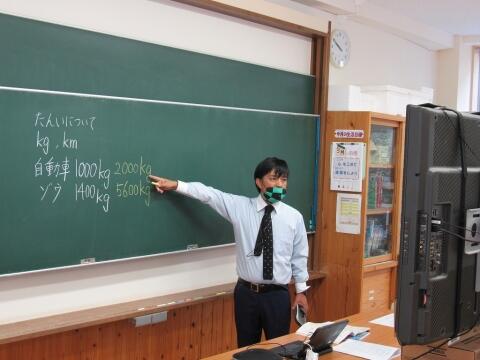 たんいについて
kg , km
自動車 1000kg 2000kg
ゾウ 1400kg 5600kg
今月の生活目標